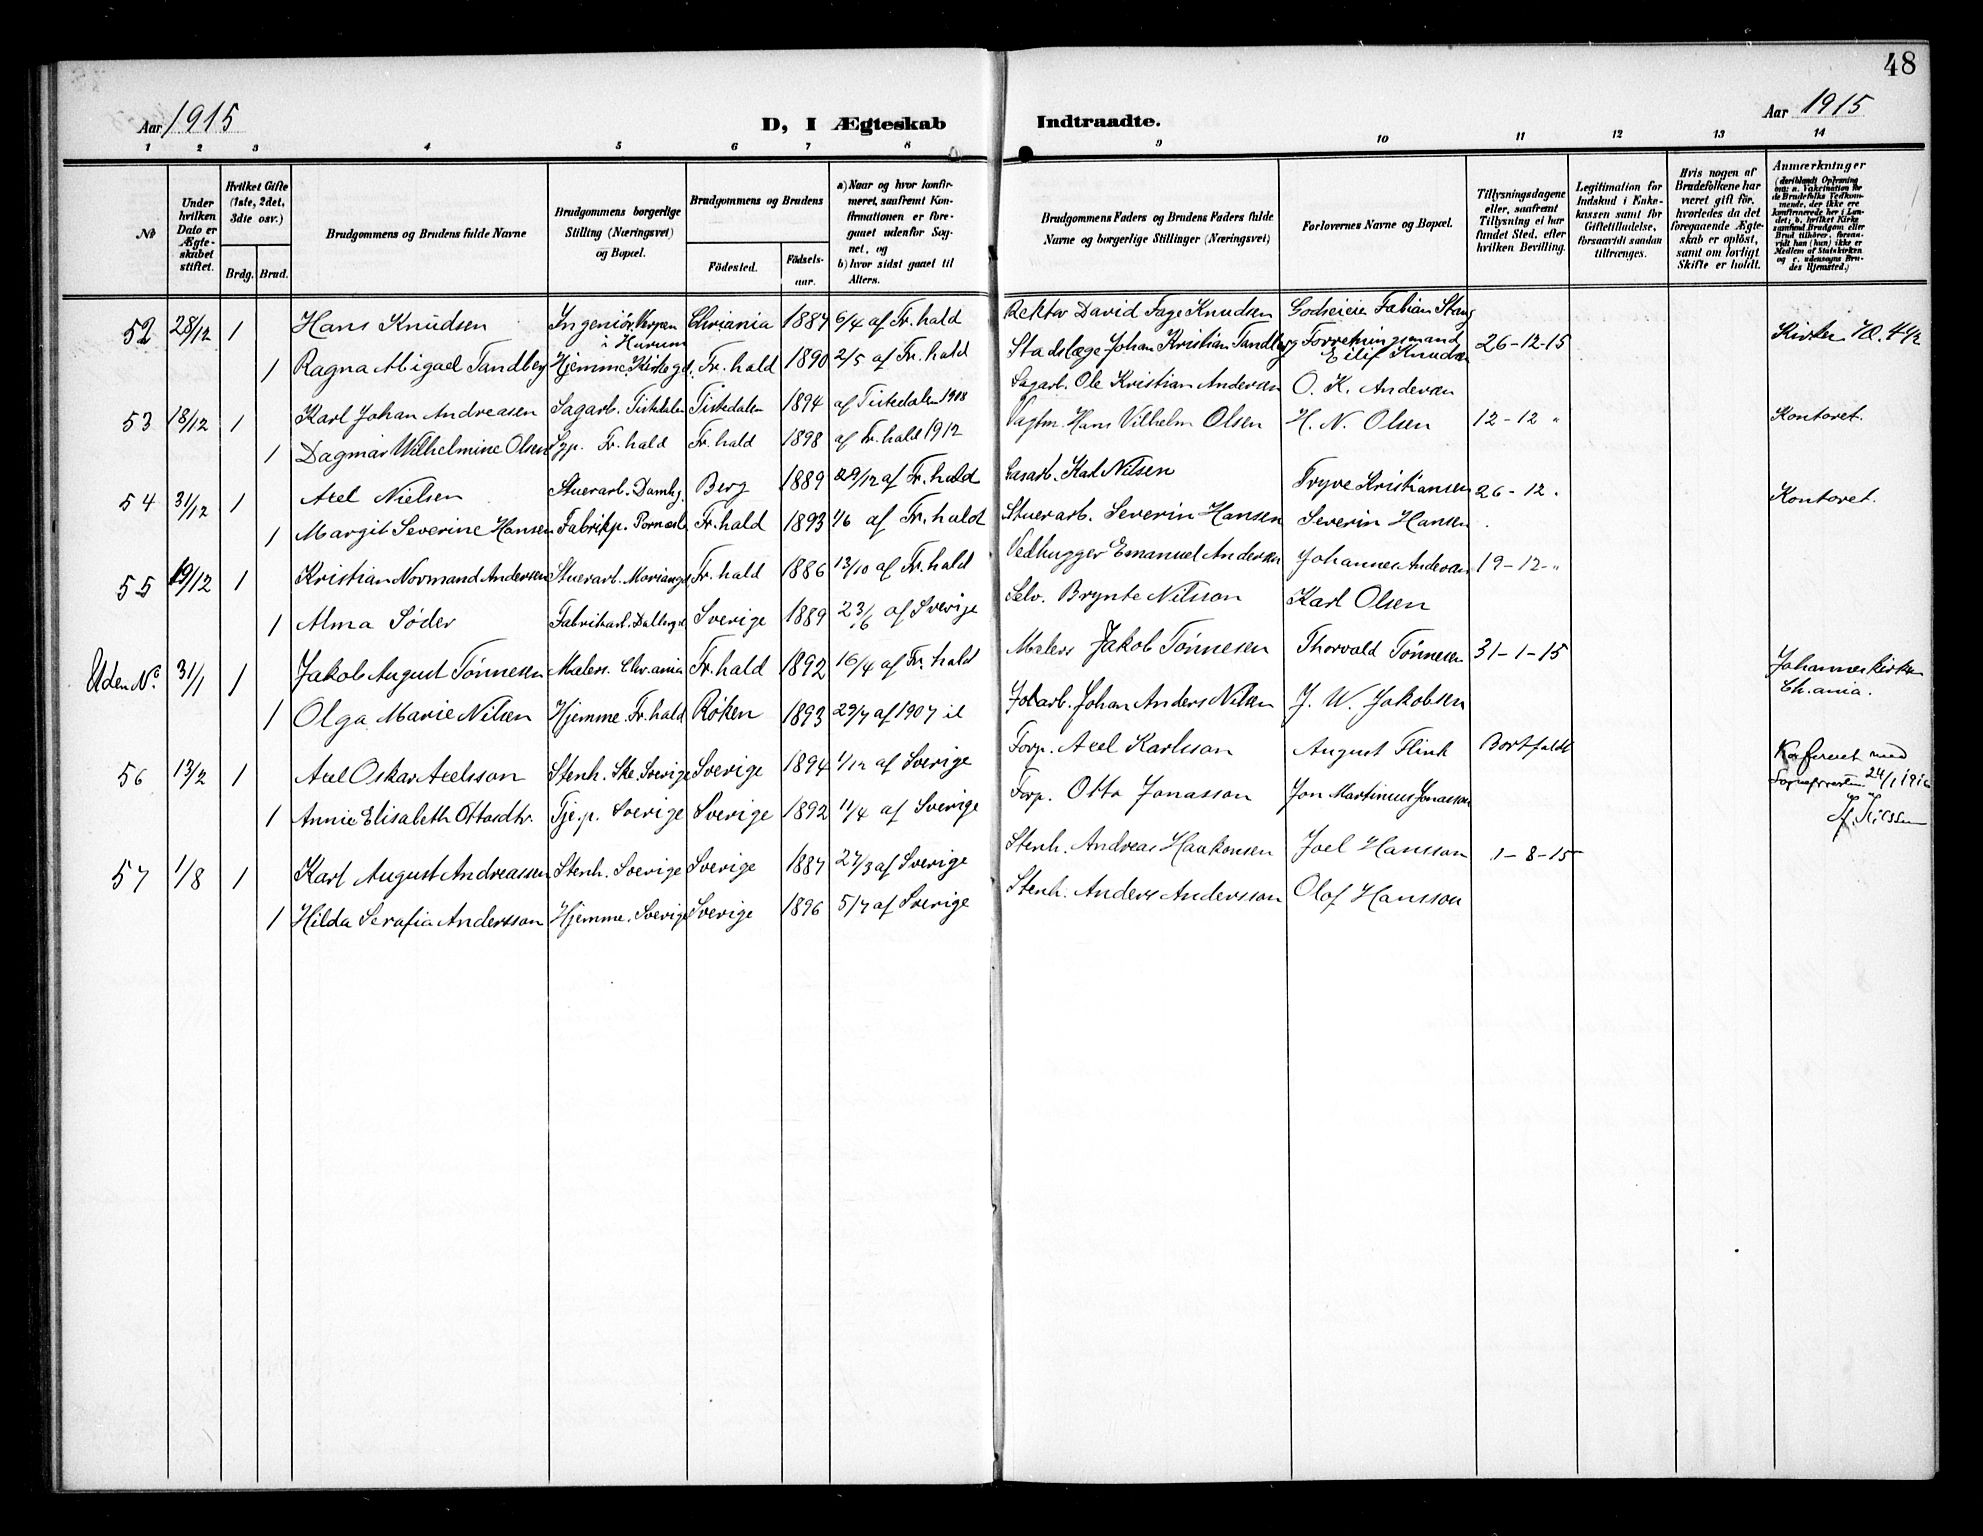 48
Aar 1915
D, I Ægteskab Indtraadte.
Aar 1915
1 2 3 4 5 6 7 8 9 10 11 12 13 14
No
Under hvilken Dato er Ægteskabet stiftet.
Hvilket Gifte (1ste, 2det, 3die osv.)
Brdg. Brud.
Brudgommens og Brudens fulde Navne
Brudgommens borgerlige Stilling (Næringsvei) og Bopæl.
Brudgommens og Brudens
Födested. Födselsaar.
a) Naar og hvor konfirmeret, saafremt Konfirmationen er foregaaet udenfor Sognet, og
b) hvor sidst gaaet til Alters.
Brudgommens Faders og Brudens Faders fulde Navne og borgerlige Stillinger (Næringsvei)
Forlovernes Navne og Bopæl.
Tillysningsdagene eller, saafremt Tillysning ei har fundet Sted, efter hvilken Bevilling.
Legitimation for Indskud i Enkekassen samt for Giftetilladelse, forsaavidt saadan tiltrænges.
Hvis nogen af Brudefolkene har været gift för, hvorledes da det foregaaende Ægteskab er oplöst, samt om lovligt Skifte er holdt.
Anmærkninger
52 28/12 1 Hans Knudsen Ingeniör. Verpen i Hurum Chriania 1887 6/4 af Fr. hald Rektor David Fage Knudsen Godseier Fabian Stang
1 Ragna Abigael Tandberg Hjemme. Kirkegt. Fr. hald 1890 2/5 af Fr. hald Stadslæge Johan Kristian Tandberg Forretningsmand Eilif Knudsen 26-12-15 Kirken Kl. 4 1/2
53 18/12 1 Karl Johan Andreasen Sagarb. Tistedalen Tistedalen 1894 af Tistedalen 1908 Sagarb. Ole Kristian Andersen O. K. Andersen
1 Dagmar Wilhelmine Olsen Syp. Fr. hald Fr. hald 1898 af Fr. hald 1912 Vagtm. Hans Vilhelm Olsen H. N. Olsen 12-12 " Kontoret.
54 31/12 1 Axel Nielsen Stuerarb. Damhg. Berg 1889 29/12 af Fr. hald Gasarb. Karl Nilsen Tryve Kristiansen 26-12. Kontoret.
1 Margit Severine Hansen Fabrikp. Fr. hald 1893 1/6 af Fr. hald Stuerarb. Severin Hansen Severin Hansen
55 19/12 1 Kristian Normand Andersen Stuerarb. Fr. hald 1886 13/10 af Fr. hald Vedhugger Emanuel Andersen Johannes Andersen 19-12-"
1 Alma Söder Fabrikarb. Sverige 1889 23/6 af Sverige Selv. Brynte Nilsson Karl Olsen
Uden No. 31/1 1 Jakob August Tönnesen Malers. Chr.ania Fr. hald 1892 16/4 af Fr. hald Malers Jakob Tönnesen Thorvald Tönnesen 31-1-15 Johanneskirken Ch.ania.
1 Olga Marie Nilsen Hjemme. Fr. hald Röken 1893 29/7 af 1907 Johan Anders Nilsen J. W. Jakobsen
56 13/2 1 Axel Oskar Axelsson Stenh. Ske. Sverige Sverige 1894 1/12 af Sverige Forp. Axel Karlsson August Flink Bortfaldt Konfereret med Sognepresten 24/1 1916
1 Annie Elisabeth Ottosdtr. Tje.p. Sverige Sverige 1892 11/4 af Sverige Forp. Otto Jonasson Jon Martinius Jonasson
57 1/8 1 Karl August Andreassen Stenh. Sverige Sverige 1887 27/3 af Sverige Stenh. Andreas Haakonsen Joel Hansson 1-8-15
1 Hilda Serafia Andersson Hjemme. Sverige Sverige 1896 5/7 af Sverige Stenh. Anders Andersson Olof Hansson